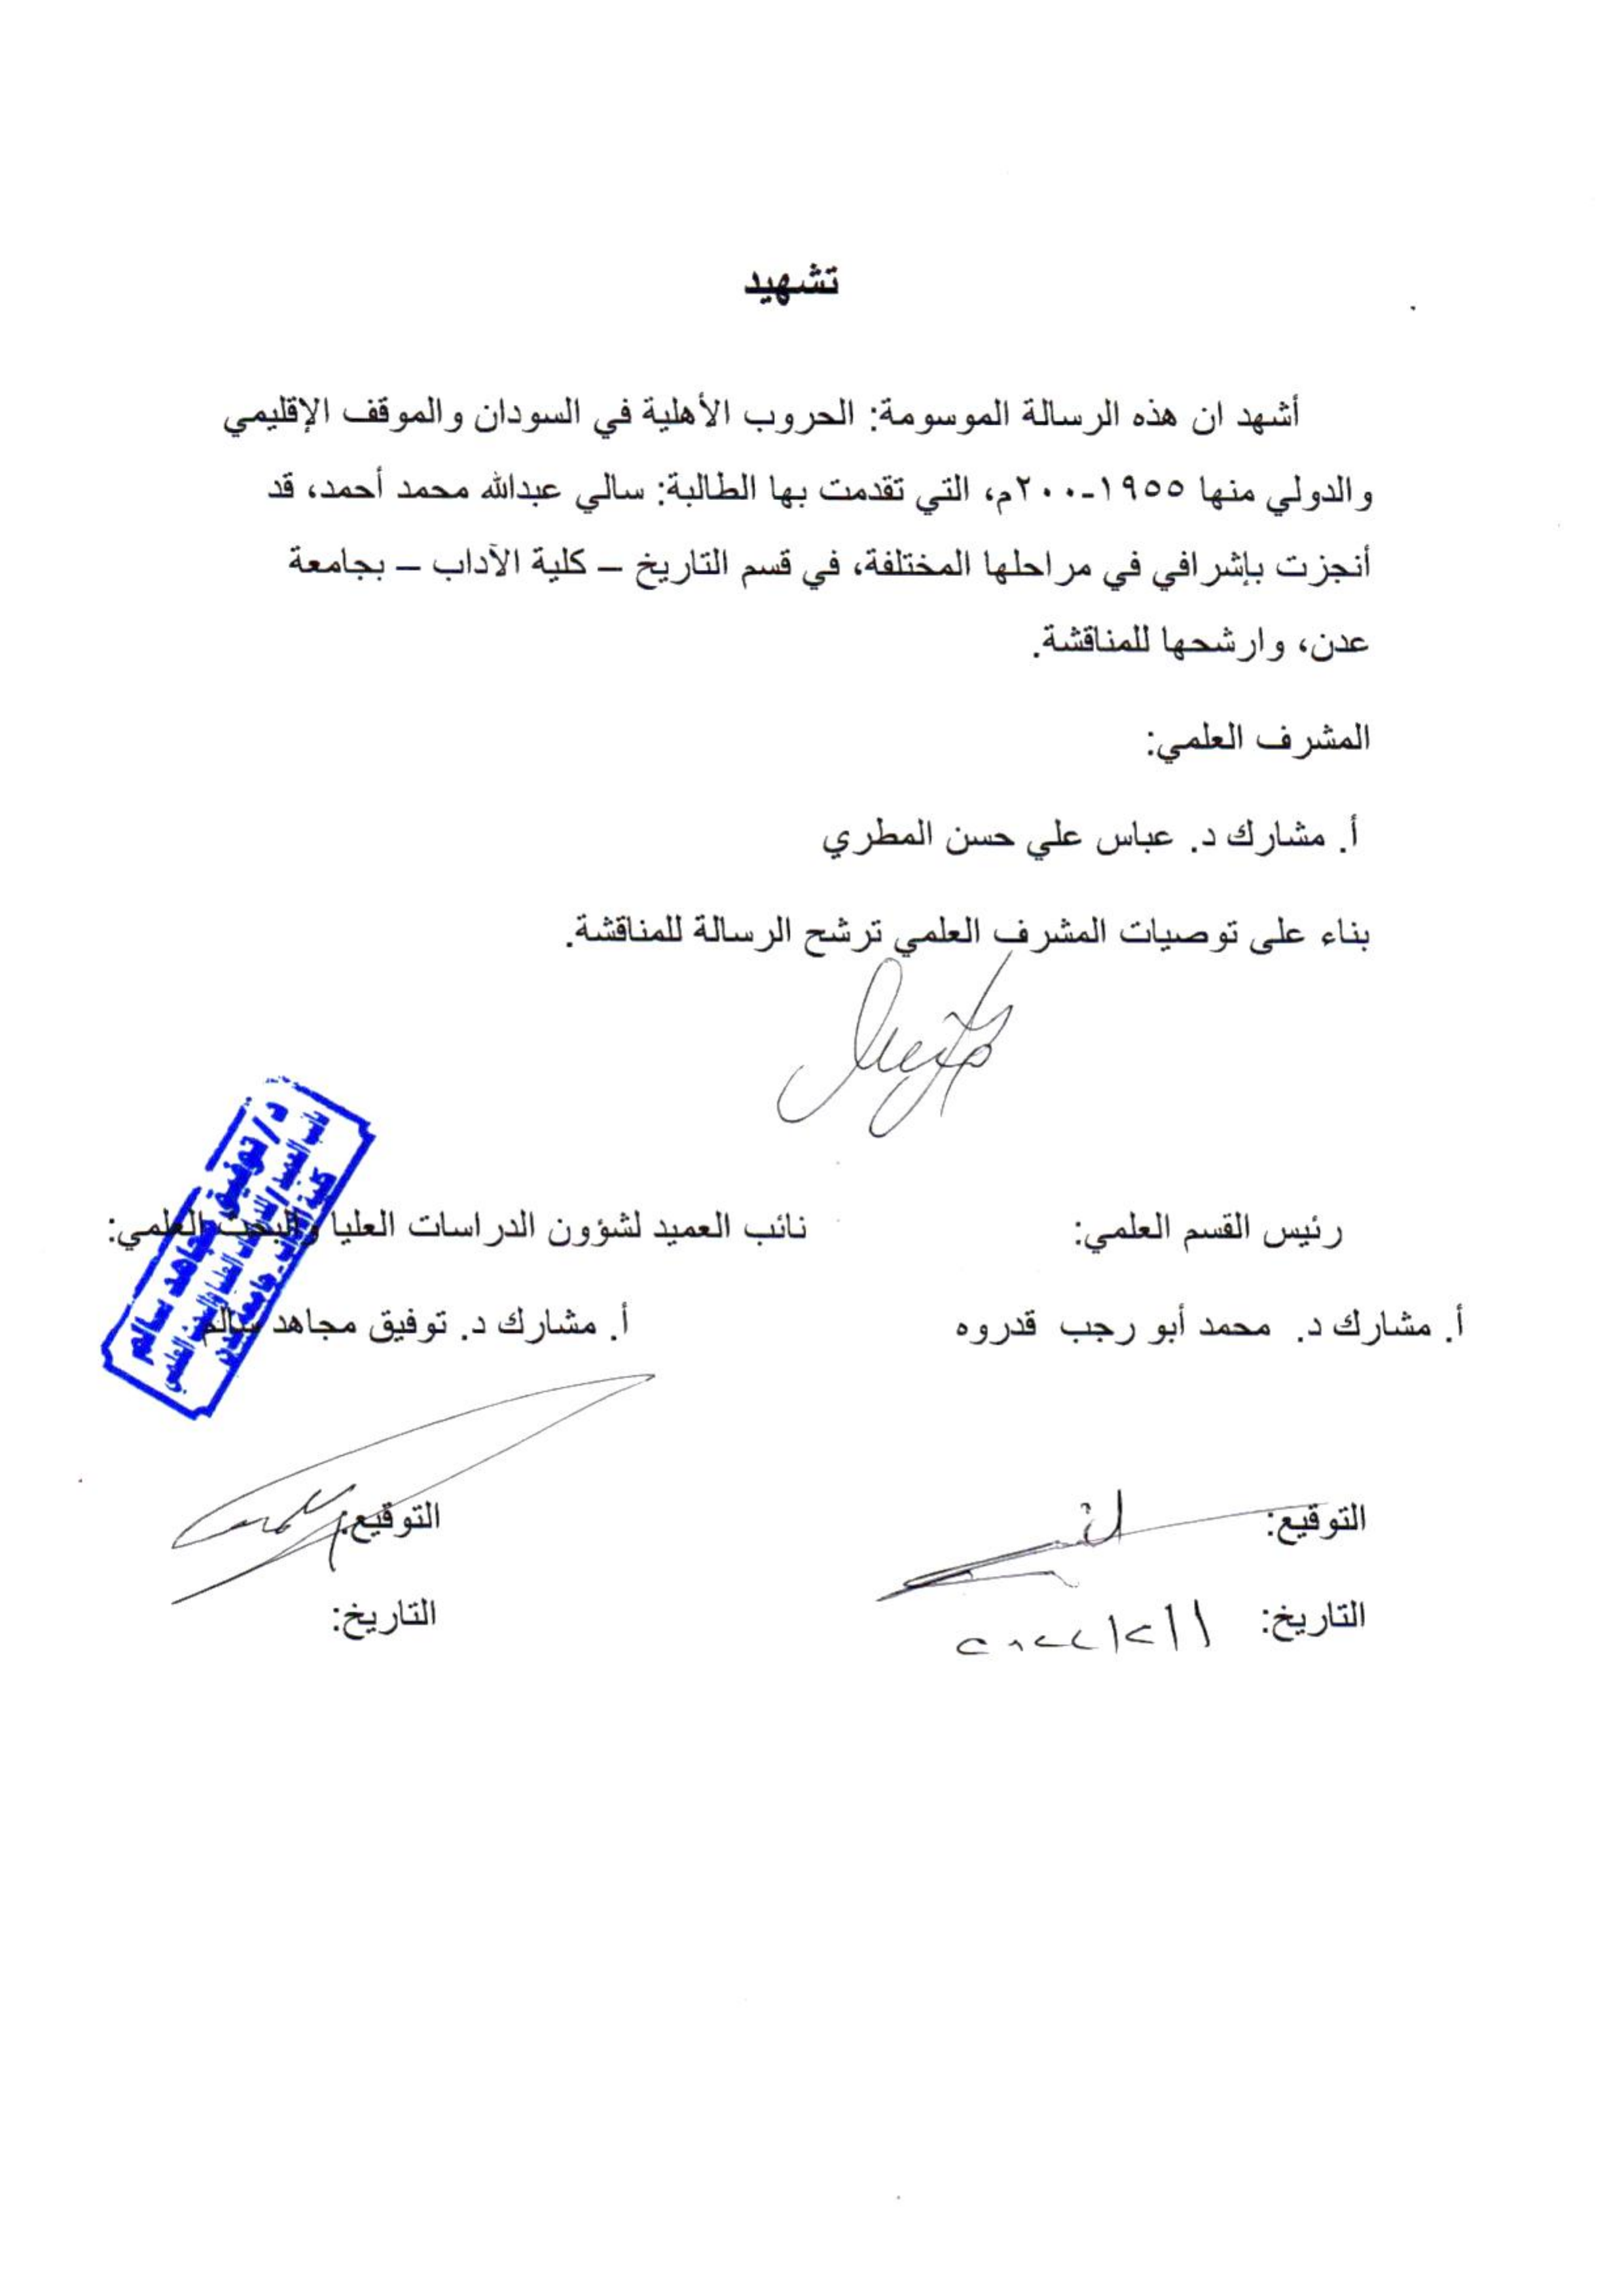 تشهيد
أشهد ان هذه الرسالة الموسومة: الحروب الأهلية في السودان والموقف الإقليمي
والدولي منها ١٩٥٥-٢٠٠٠م، التي تقدمت بها الطالبة: سالي عبدالله محمد أحمد، قد
أنجزت بإشرافي في مراحلها المختلفة، في قسم التاريخ – كلية الآداب – بجامعة
عدن، وارشحها للمناقشة.
المشرف العلمي:
أ. مشارك د. عباس علي حسن المطري
بناء على توصيات المشرف العلمي ترشح الرسالة للمناقشة.
رئيس القسم العلمي:
أ. مشارك د. محمد أبو رجب قدروه
التوقيع:
التاريخ:
نائب العميد لشؤون الدراسات العليا والبحث العلمي:
أ. مشارك د. توفيق مجاهد سالم
التوقيع:
التاريخ:
د/توفيق مجاهد سالم
نائب العميد للدراسات العليا والبحث العلمي
كلية الآداب - جامعة عدن